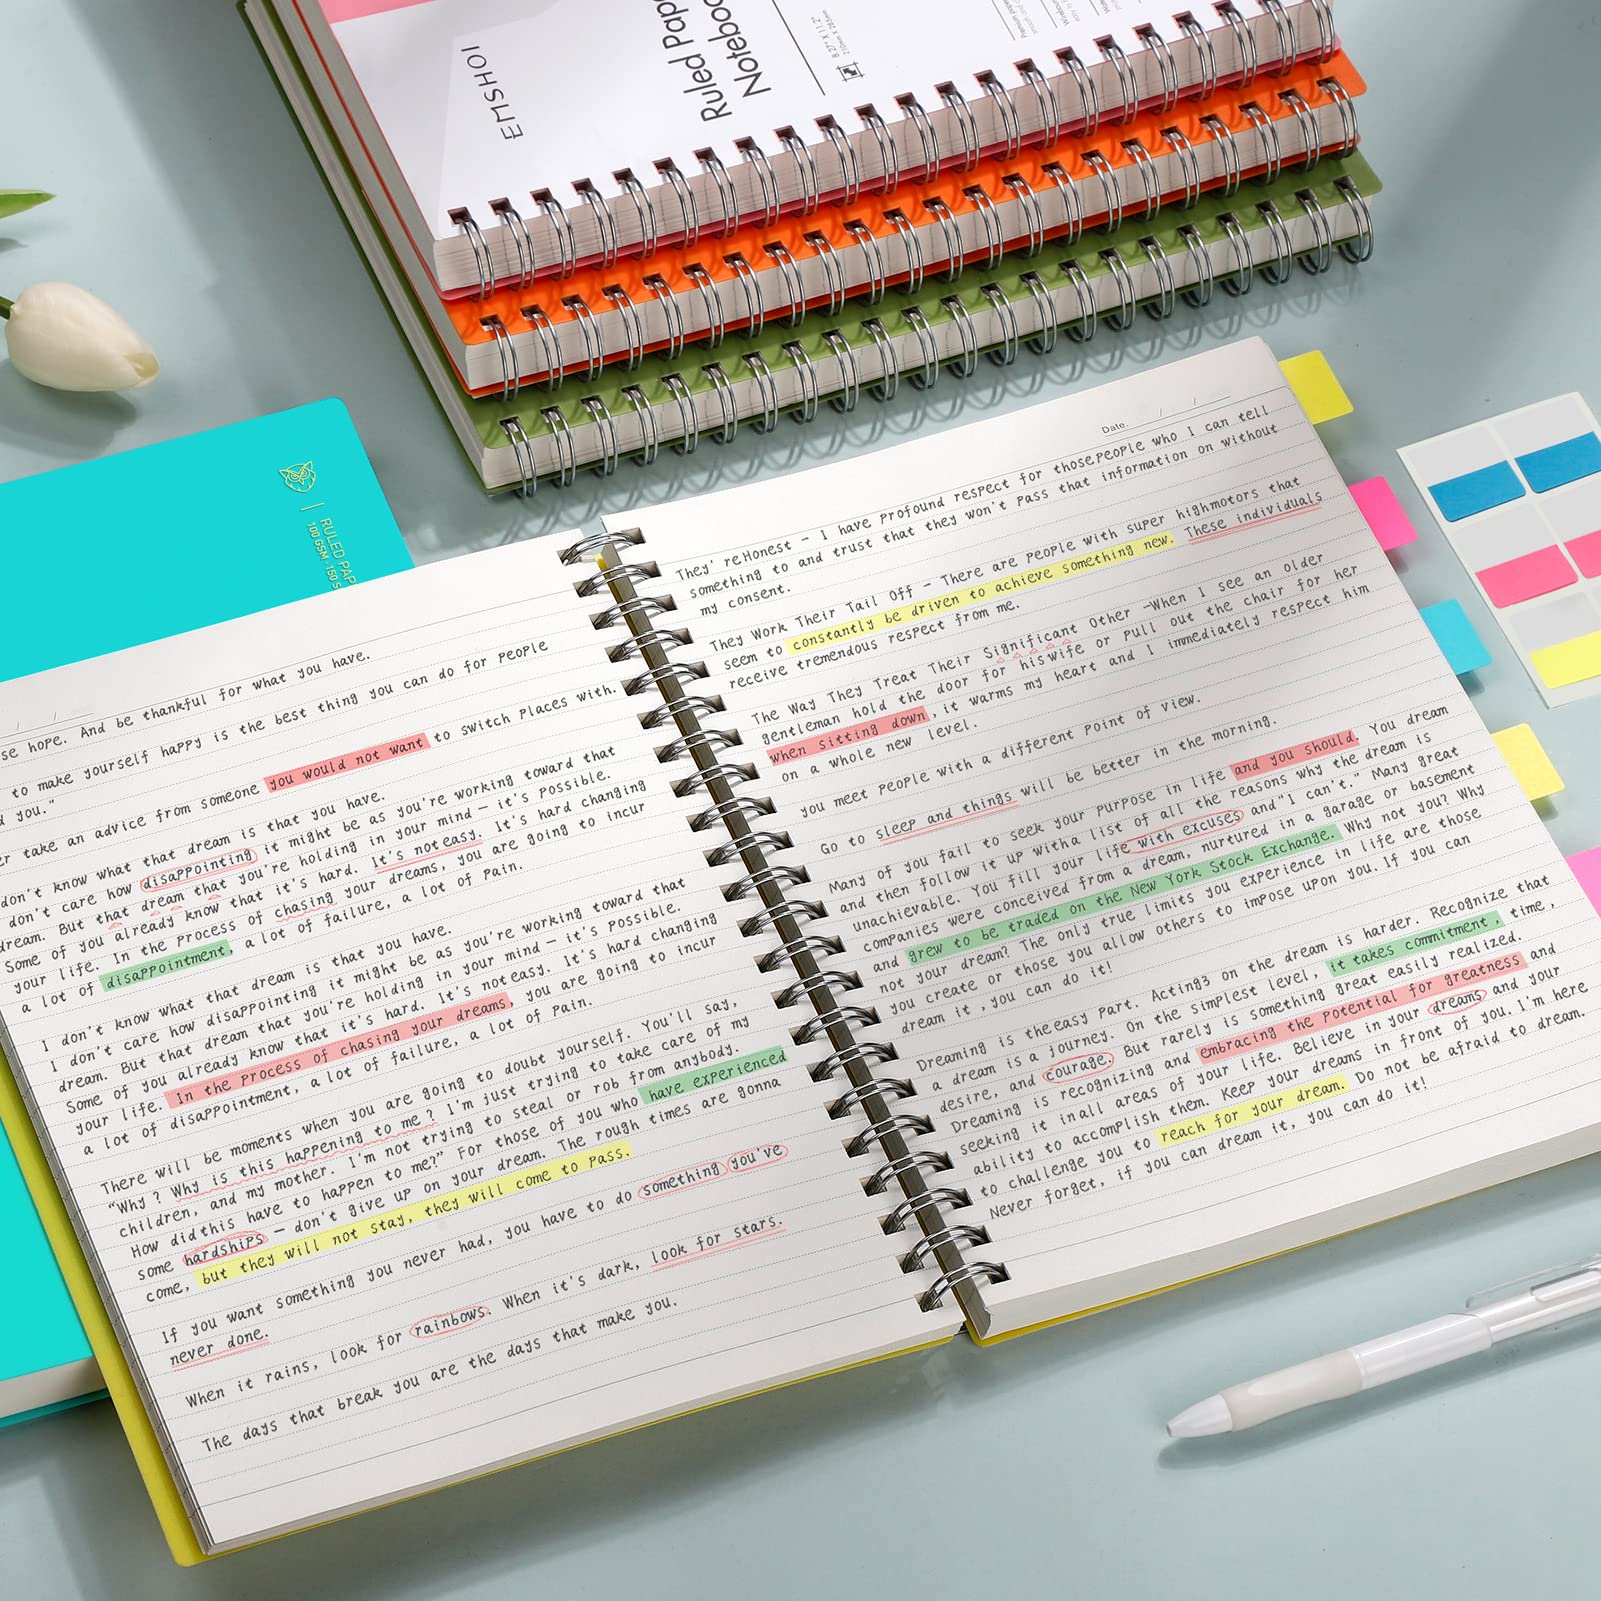 EMSHOI
Ruled Pape
Noteboo
8.27" X 11.2"
210mm x 285mm
RULED PAP
100 GSM
se hope. And be thankful for what you have.
to make yourself happy is the best thing you can do for people
d you."
er take an advice from someone you would not want to switch places with.
don't know what that dream is that you have.
don't care how disappointing it might be as you're working toward that
dream. But that dream that you're holding in your mind — it's possible.
Some of you already know that it's hard. It's not easy. It's hard changing
your life. In the process of chasing your dreams, you are going to incur
a lot of disappointment, a lot of failure, a lot of pain.
I don't know what that dream is that you have.
I don't care how disappointing it might be as you're working toward that
dream. But that dream that you're holding in your mind — it's possible.
Some of you already know that it's hard. It's not easy. It's hard changing
your life. In the process of chasing your dreams, you are going to incur
a lot of disappointment, a lot of failure, a lot of pain.
There will be moments when you are going to doubt yourself. You'll say,
"Why? Why is this happening to me? I'm just trying to take care of my
children, and my mother. I'm not trying to steal or rob from anybody.
How did this have to happen to me?" For those of you who have experienced
some hardships — don't give up on your dream. The rough times are gonna
come, but they will not stay, they will come to pass.
If you want something you never had, you have to do something you've
never done.
When it rains, look for rainbows. When it's dark, look for stars.
The days that break you are the days that make you.
Date.
They' reHonest — I have profound respect for thosepeople who I can tell
something to and trust that they won't pass that information on without
my consent.
They Work Their Tail Off — There are people with super highmotors that
seem to constantly be driven to achieve something new. These individuals
receive tremendous respect from me.
The Way They Treat Their Significant Other —When I see an older
gentleman hold the door for hiswife or pull out the chair for her
when sitting down, it warms my heart and I immediately respect him
on a whole new level.
you meet people with a different point of view.
Go to sleep and things will be better in the morning.
Many of you fail to seek your purpose in life and you should. You dream
and then follow it up witha list of all the reasons why the dream is
unachievable. You fill your life with excuses and"I can't." Many great
companies were conceived from a dream, nurtured in a garage or basement
and grew to be traded on the New York Stock Exchange. Why not you? Why
not your dream? The only true limits you experience in life are those
you create or those you allow others to impose upon you.If you can
dream it ,you can do it!
Dreaming is theeasy part. Acting3 on the dream is harder. Recognize that
a dream is a journey. On the simplest level, it takes commitment, time,
desire, and courage. But rarely is something great easily realized.
Dreaming is recognizing and embracing the potential for greatness and
seeking it inall areas of your life. Believe in your dreams and your
ability to accomplish them. Keep your dreams in front of you. I'm here
to challenge you to reach for your dream. Do not be afraid to dream.
Never forget, if you can dream it, you can do it!